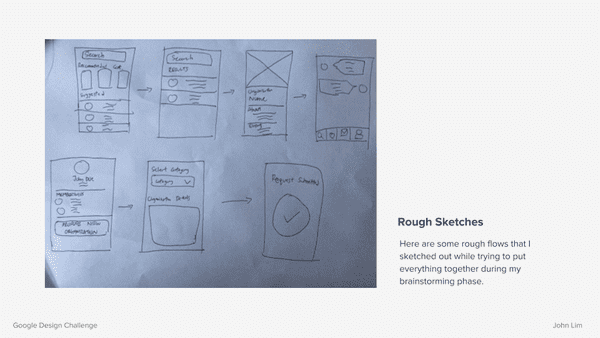 Search
Search
RESULTS
Suggested
Organization
Name
John Doe
MEMBERSHIP
ORGANIZATION
Select Category
Category
Organization Details
Request Submitted
Rough Sketches
Here are some rough flows that I
sketched out while trying to put
everything together during my
brainstorming phase.
Google Design Challenge
John Lim